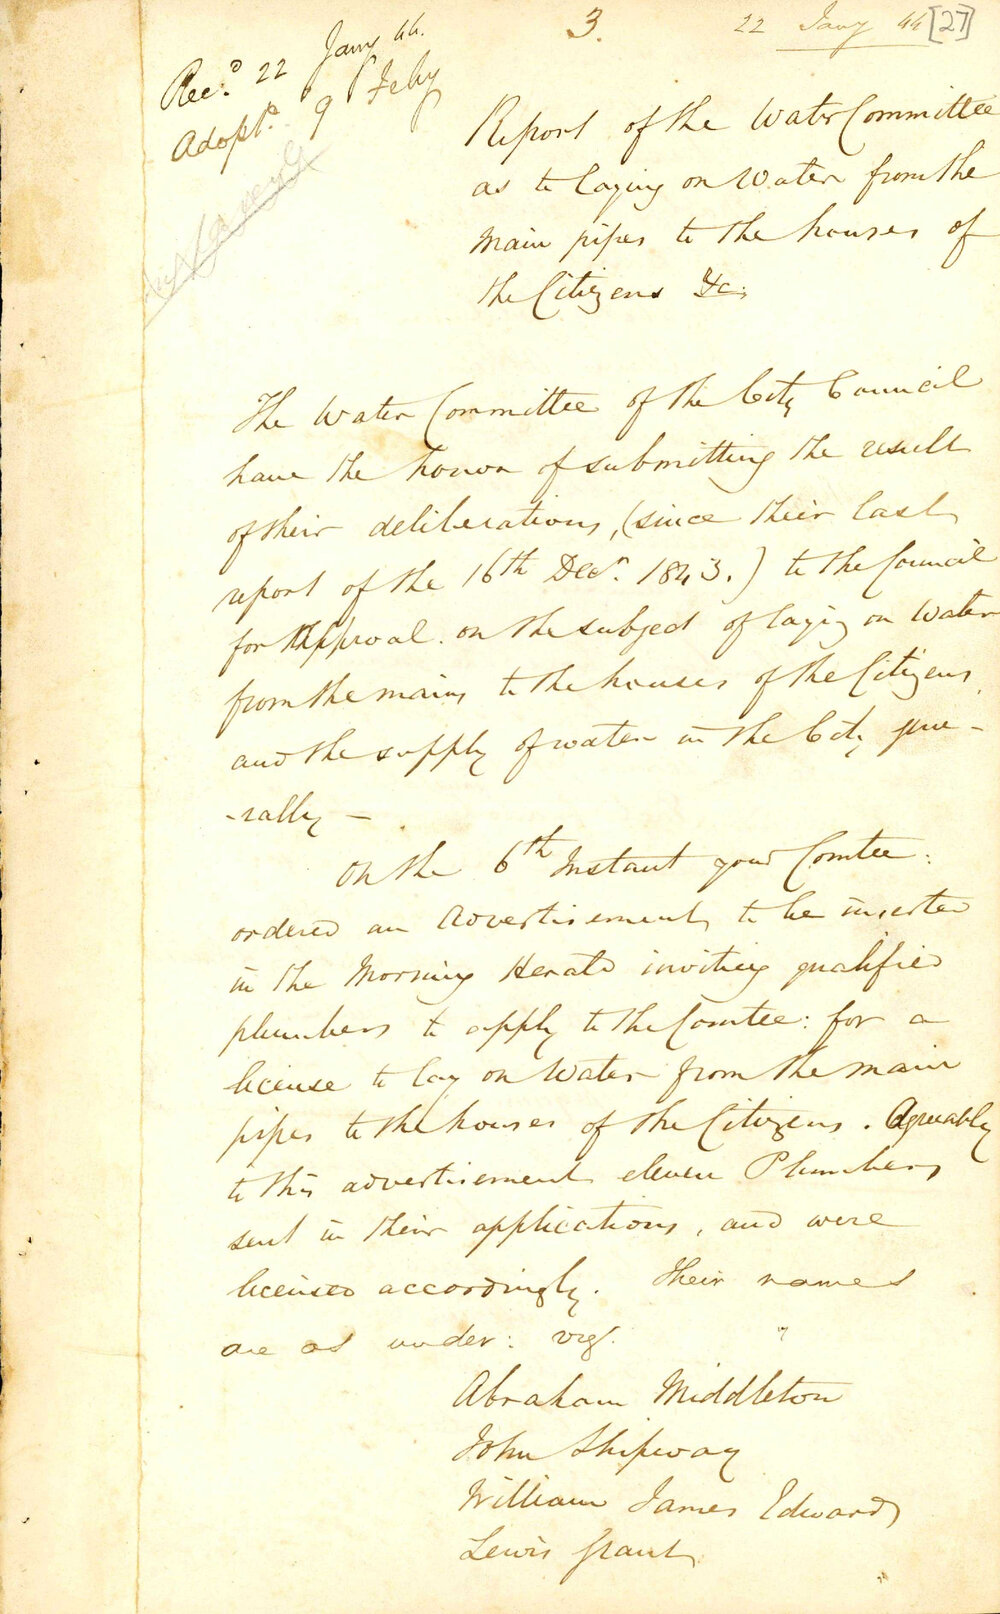 3.
22 Jany 44 [27]
Rec.d 22 Jany 44.
Adopt.d 9 Feby
Report of the Water Committee
as to laying on Water from the
main pipes to the houses of
the Citizens &c.
The Water Committee of the City Council
have the honor of submitting the result
of their deliberations, (since their last
report of the 16th Decr. 1843.) to the Council
for Approval on the subject of laying on Water
from the mains to the houses of the Citizens,
and the supply of water in the City gene-
-rally -
On the 6th Instant your Comtee:
ordered an Advertisement to be inserted
in the Morning Herald inviting qualified
plumbers to apply to the Comtee: for a
license to lay on Water from the main
pipes to the houses of the Citizens. Agreeably
to this advertisement eleven Plumbers
sent in their applications, and were
licensed accordingly. Their names
are as under: viz.
Abraham Middleton
John Shipway
William James Edwards
Lewis Grant